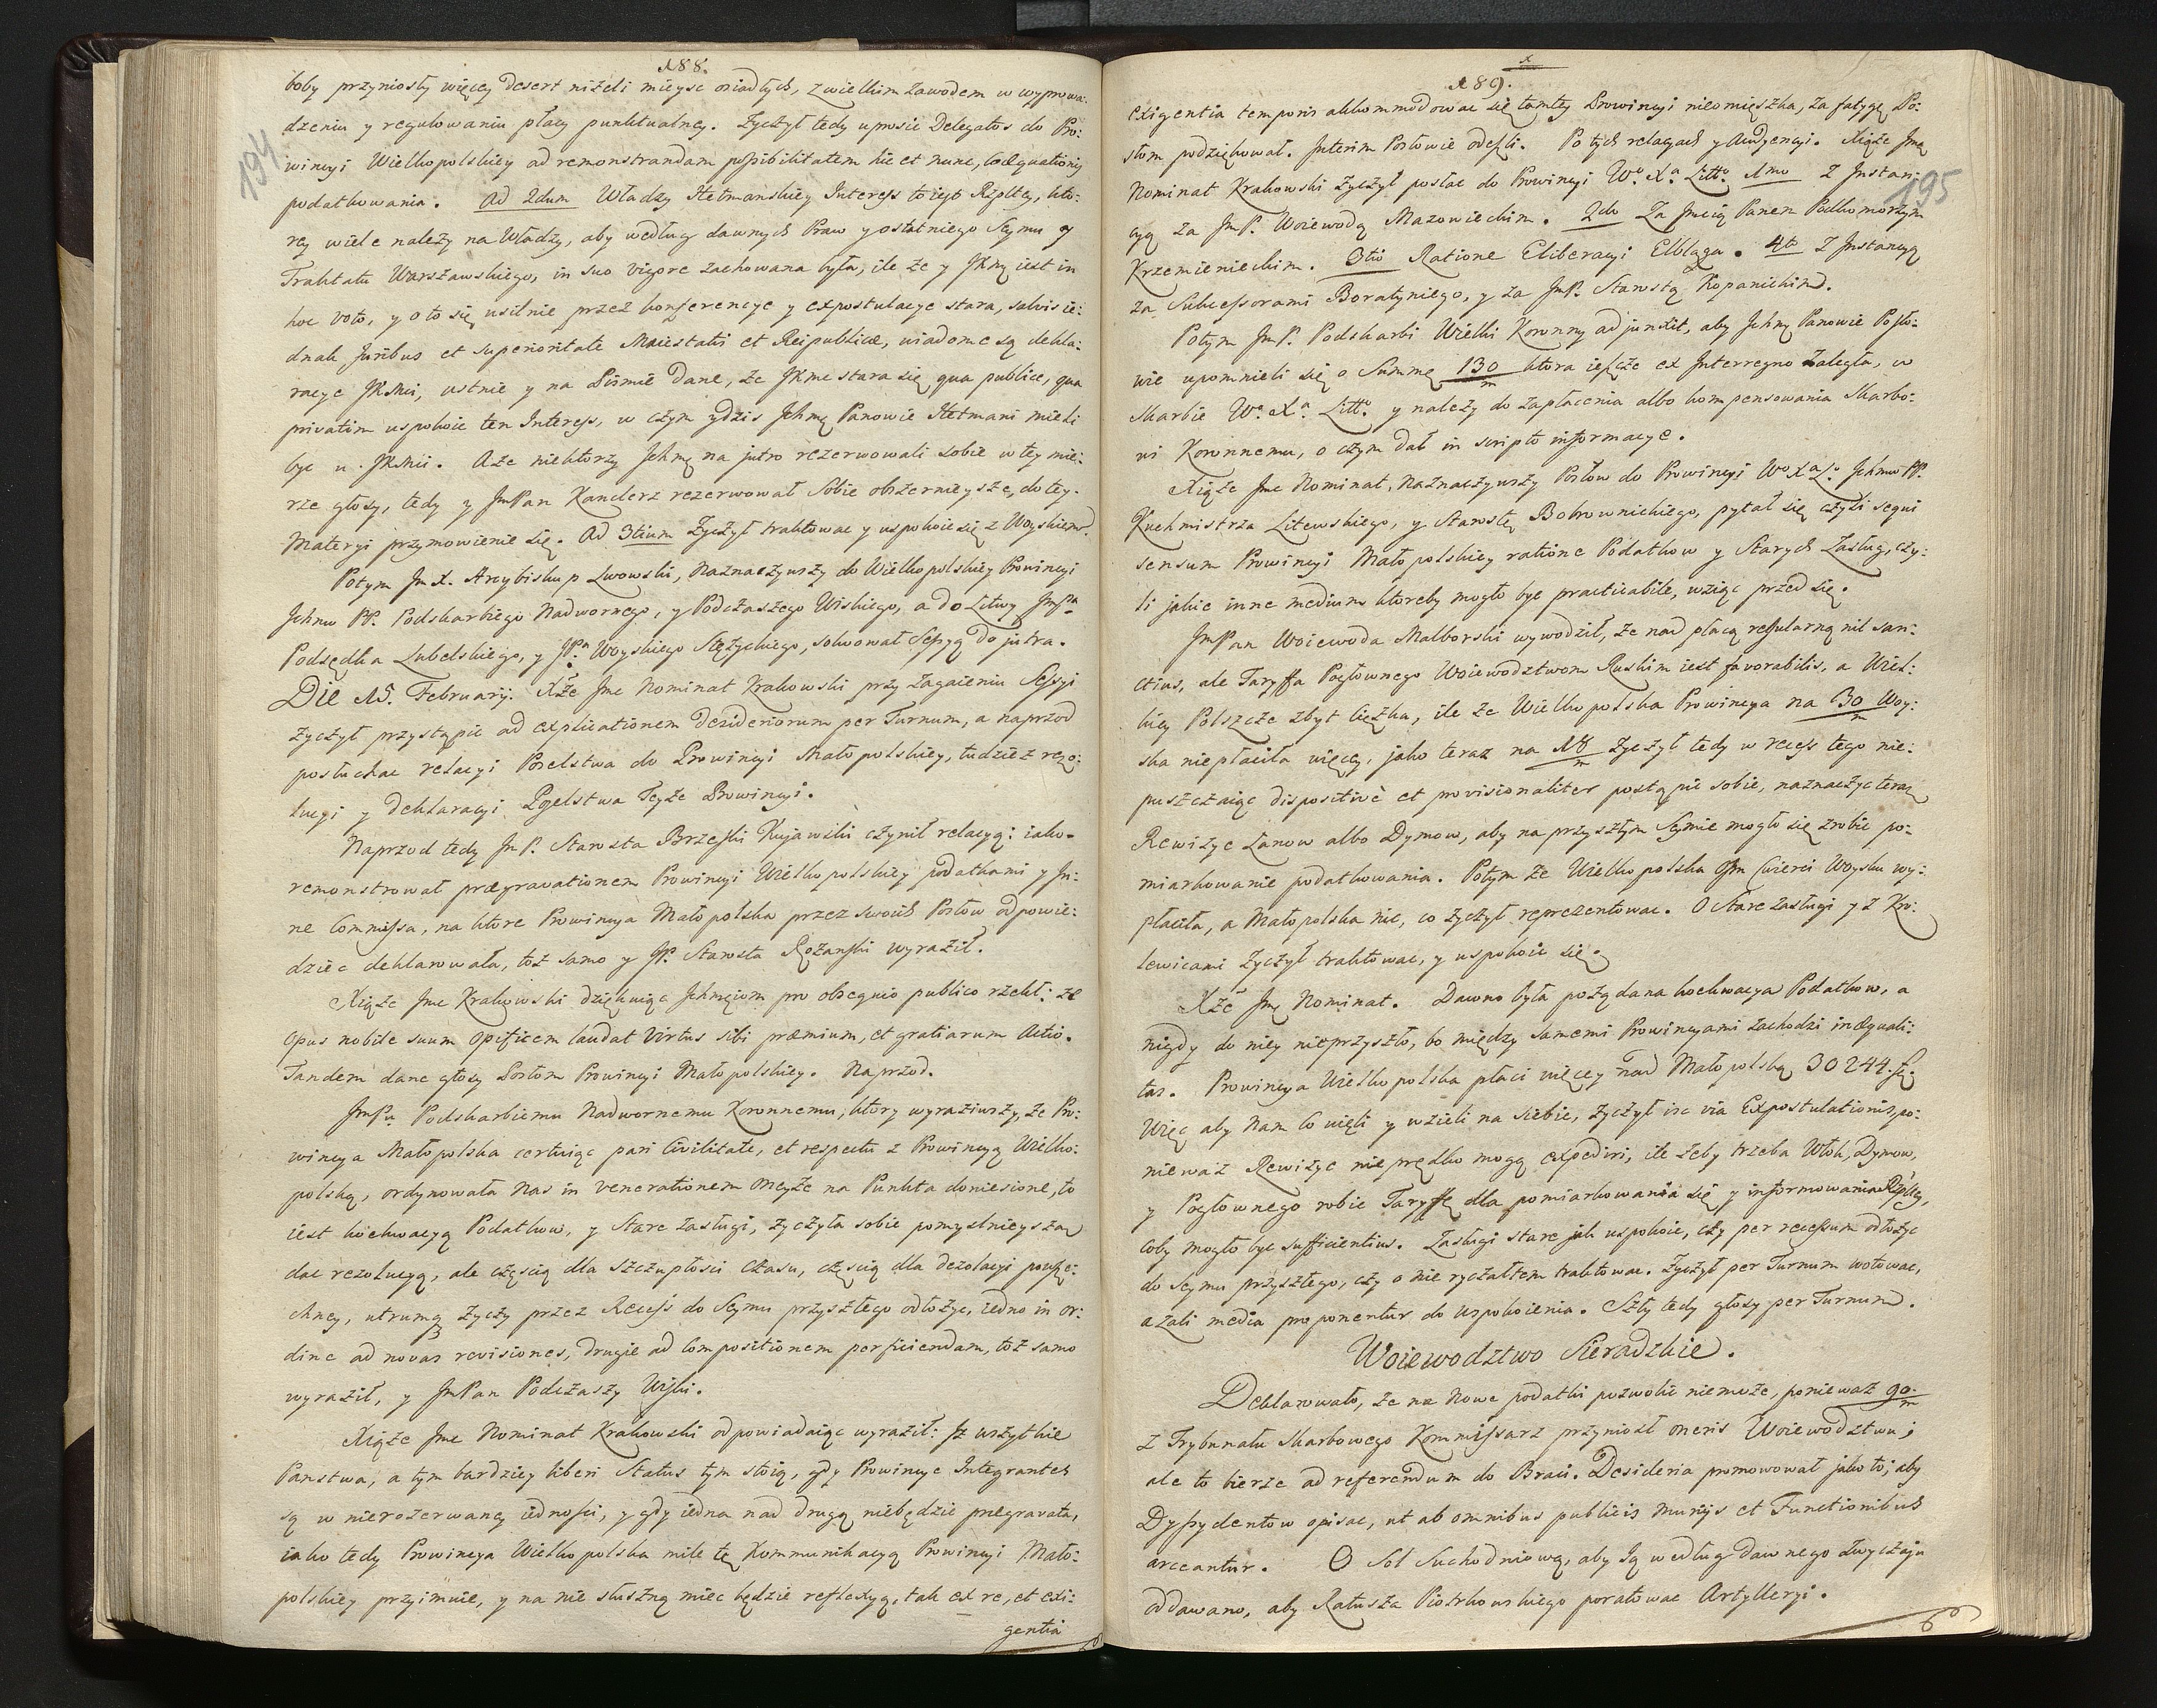 188.
194
boby przyniosły więcey desert niżeli mieysc osiadłych, z wielkim zawodem w wyprowa:
dzeniu y regulowaniu płacy punktualney. Zyczył tedy uprosic Delegatos do Pro:
wincyi Wielkopolskiey ad remonstrandam possibilitatem hic et nunc, Coæquationis
podatkowania. Ad 2dum Władzy Hetmanskiey Interess to iest Rzpltey, kto:
rey wiele należy na Władzy, aby według dawnych Praw y ostatniego Seymu y
Traktatu Warszawskiego, in suo vigore zachowana była, ile że y JKmć iest in
hoc voto, y o to się usilnie przez konferencye y expostulacye stara, salvis ie:
dnak Juribus et superioritate Maiestatis et Reipublicæ, wiadome są dekla:
racye JKMci, ustnie y na Pismie dane, że JKmc stara się qua publice, qua
privatim uspokoic ten Interess, w czym y dzis Jchmć Panowie Hetmani mieli
byc u JKMci. A że niektorzy Jchmć na jutro rezerwowali sobie w tey mie:
rze głosy, tedy y JmPan Kanclerz rezerwował sobie obszernieysze, do tey
Materyi przymowienie się. Ad 3tium Zyczył traktowac y uspokoic się z Woyskiem.
Potym Jm X. Arcybiskup Lwowski, Naznaczywszy do Wielkopolskiey Prowincyi
Jchmw PP. Podskarbiego Nadwornego, y Podczaszego Wiskiego, a do Litwy JmPa
Podsędka Lubelskiego, y JPa Woyskiego Stężyckiego, solwował Sessyą do jutra.
Die 15. February. Xże Jmc Nominat Krakowski przy zagaieniu Sessyi
życzył przystąpic ad explicationem desideriorum per Turnum, a naprzod
posłuchac relacyi Poselstwa do Prowincyi Małopolskiey, tudzież rezo:
lucyi y deklaracyi Poselstwa Teyże Prowincyi.
Naprzod tedy JmP. Starosta Brzeski Kujawski czynił relacyą: iako
remonstrował prægravationem Prowincyi Wielkopolskiey podatkami y In:
ne Commissa, na ktore Prowincya Małopolska przez swoich Posłow odpowie:
dziec deklarowała, toż samo y JP. Starosta Rożanski wyraził.
Xiąże Jmc Krakowski dziękuiąc Jchmciom pro obsequio publico rzekł: że
Opus nobile suum opificem laudat Virtus sibi præmium, et gratiarum Actio.
Tandem dane głosy Posłom Prowincyi Małopolskiey. Naprzod.
JmPu Podskarbiemu Nadwornemu Koronnemu, ktory wyraziwszy, że Pro:
wincya Małopolska certuiąc pari Civilitate, et respectu z Prowincyą Wielko:
polską, ordynowała Nas in venerationem oneyże na Punkta doniesione, to
iest koekwacyą Podatkow, y Stare zasługi, życzyła sobie pomyslnieyszą
dac rezolucyą, ale częscią dla szczupłosci czasu, częscią dla dezolacyi powsze:
chney, utrumq3 życzy przez Recess do Seymu przyszłego odłożyc, iedno in or:
dine ad novas revisiones, drugie ad Compositionem perficiendam, toż samo
wyraził, y JmPan Podczaszy Wiski.
Xiąże Jmc Nominat Krakowski odpowiadaiąc wyraził: Jż wszytkie
Panstwa, a tym bardziey liberi Status tym stoią, gdy Prowincye Integrantes
są w nierozerwaney iednosci, y gdy iedna nad drugą niebędzie prægravata,
iako tedy Prowincya Wielkopolska mile tę Kommunikacyą Prowincyi Mało:
polskiey przyimuie, y na nie słuszną miec będzie reflexyą, tak ex re, et exi:
gentia
189.
195
exigentia temporis akkommodowac się tamtey Prowincyi nieomięszka, za fatygę Po:
słom podziękował. Interim Posłowie odeszli. Po tych relacyach y Audyencyi. Xiąże Jmć
Nominat Krakowski życzył posłac do Prowincyi Wo Xa Litto 1mo Z Instan:
cyą za JmP. Woiewodą Mazowieckim. 2do Za Jmcią Panem Podkomorzym
Krzemienieckim. 3tio Ratione Eliberacyi Elbląga. 4to Z Instancyą
za Sukcessorami Boratyniego, y za JmP. Starostą Kopanickim.
Potym JmP. Podskarbi Wielki Koronny adjunxit, aby Jchmć Panowie Posło:
wie upomnieli się o Summę 130/m ktora ieszcze ex Interregno zaległa, w
Skarbie Wo Xa Litto y należy do zapłacenia albo kompensowania Skarbo:
wi Koronnemu, o czym dał in scripto informacye.
Xiąże Jmc Nominat, Naznaczywszy Posłow do Prowincyi Wo Xa Lo Jchmw PP.
Kuchmistrza Litewskiego, y Starostę Bobrownickiego, pytał się czyli sequi
sensum Prowincyi Małopolskiey ratione Podatkow y Starych Zasług, czy:
li jakie inne medium ktoreby mogło byc practicabile, wziąc przed się.
JmPan Woiewoda Malborski wywodził, że nad płacą regularną nil san:
ctius, ale Taryffa Pogłownego Woiewodztwom Ruskim iest favorabilis, a Wiel:
kiey Polszcze zbyt cięzka, ile że Wielkopolska Prowincya na 30/m Woy:
ska niepłaciła więcey, jako teraz na 18/m Zyczył tedy w recess tego nie:
puszczaiąc dispositive et provisionaliter postąpic sobie, naznaczyc teraz
Rewizye Łanow albo Dymow, aby na przyszłym Seymie mogło się zrobic po:
miarkowanie podatkowania. Potym że Wielkopolska Osm Cwierci Woysku wy:
płaciła, a Małopolska nic, co życzył reprezentowac. O Stare zasługi y z Kro:
lewicami życzył traktowac, y uspokoic się.
Xże Jmć Nominat. Dawno była pożądana koekwacya Podatkow, a
nigdy do niey nieprzyszło, bo między samemi Prowincyami zachodzi inæquali:
tas. Prowincya Wielkopolska płaci więcey nad Małopolską 30244. fl.
Więc aby Nam to ujęli y wzieli na siebie, życzył isc via Expostulationis, po:
nieważ Rewizye nie prędko mogą expediri, ile żeby trzeba Włok, Dymow,
y Pogłownego robic Taryffę dla pomiarkowania się y informowania Rzpltey,
coby mogło byc sufficientius. Zasługi stare jak uspokoic, czy per recessum odłożyc
do Seymu przyszłego, czy o nie ryczałtem traktowac. Zyczył per Turnum wotowac,
azali media proponentur do uspokoienia. Szły tedy głosy per Turnum.
Woiewodztwo Sieradzkie.
Deklarowało, że na Nowe podatki pozwolic niemoże, ponieważ 90/m
z Trybunału Skarbowego Kommissarz przyniosł oneris Woiewodztwu;
ale to bierze ad referendum do Braci. Desideria promowował jako to; aby
Dyssydentow opisac, ut ab omnibus publicis Munijs et Functionibus
arceantur. O Sol Suchodniową, aby Ią według dawnego zwyczaju
oddawano, aby Ratusza Piotrkowskiego poratowac Artylleryi.